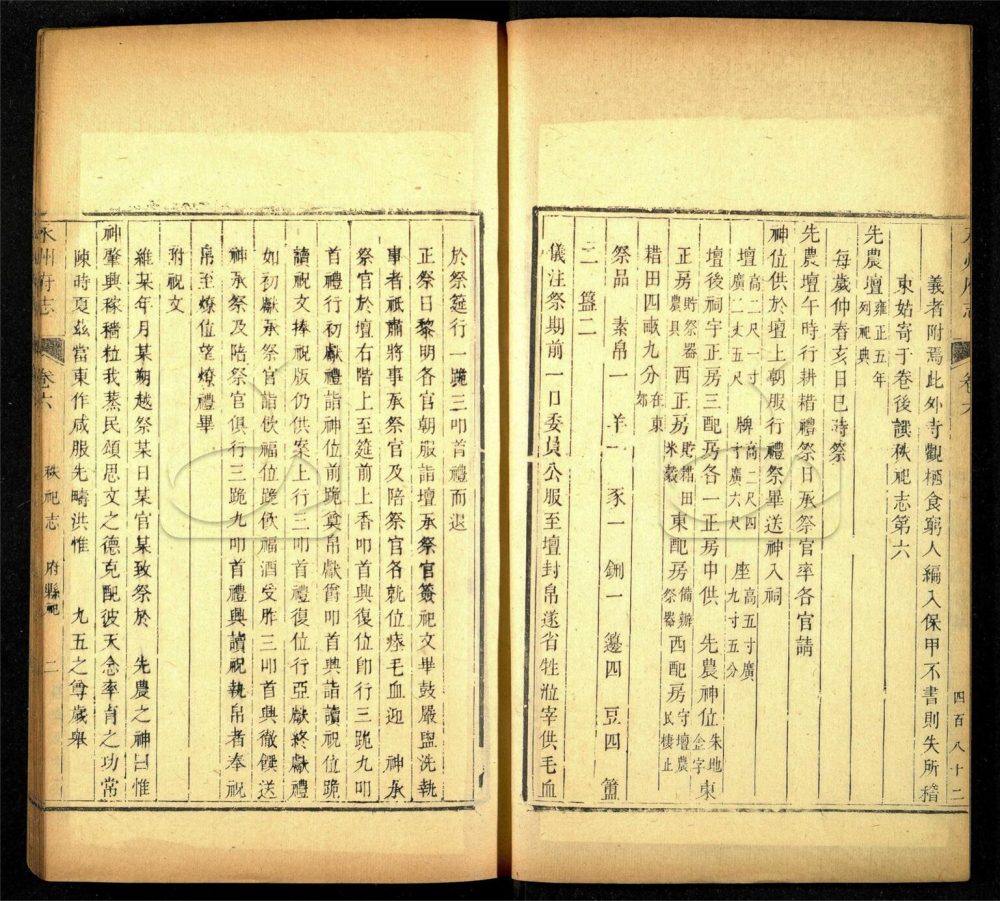 義者附焉此外寺觀栖食窮人編入保甲不書則失所稽
東姑寄于卷後譔秩祀志第六
先農壇雍正五年列祀典
每歲仲春亥日巳時祭
先農壇午時行耕耤禮祭日承祭官率各官請
神位供於壇上朝服行禮祭畢送神入祠
壇高二尺一寸廣二丈五尺 牌高二尺四寸廣六尺 座高五寸廣九寸五分
壇後祠宇正房三配房各一正房中供 先農神位朱地金字東
正房貯祭器農具西正房貯耤田米穀東配房備辦祭器西配房守壇農民棲止
耤田四畝九分在東郊
祭品 素帛一 羊一 豕一 鉶一 籩四 豆四 簠
二 簋二
儀注祭期前一日委員公服至壇封帛遂省牲涖宰供毛血
四百八十二
於祭筵行一跪三叩首禮而退
正祭日黎明各官朝服詣壇承祭官簽祀文畢鼓嚴盥洗執
事者祇肅將事承祭官及陪祭官各就位瘞毛血迎 神承
祭官於壇右階上至筵前上香叩首興復位卽行三跪九叩
首禮行初獻禮詣神位前跪奠帛獻爵叩首興詣讀祝位跪
讀祝文捧祝版仍供案上行三叩首禮復位行亞獻終獻禮
如初獻承祭官詣飲福位跪飲福酒受胙三叩首興徹饌送
神承祭及陪祭官俱行三跪九叩首禮興讀祝執帛者奉祝
帛至燎位望燎禮畢
附祝文
維某年月某朔越祭某日某官某致祭於 先農之神曰惟
神肇興稼穡粒我蒸民頌思文之德克配彼天念率育之功常
陳時夏茲當東作咸服先疇洪惟 九五之尊歲舉
永州府志 卷六 秩祀志 府縣祀 二